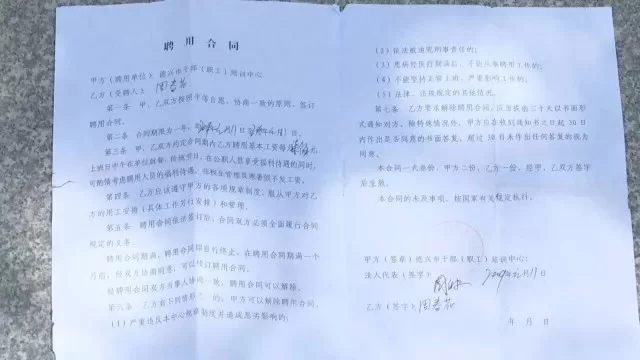 聘用合同
甲方(聘用单位):德兴市干部(职工)培训中心
乙方(受聘人):周春花
第一条 甲、乙双方按照平等自愿、协商一致的原则,签订
聘用合同。
第二条 合同期限为一年,
第三条 甲、乙双方约定合同期内乙方聘用基本工资每
上班日中午在单位就餐,
可酌情考虑聘用人员的福利待遇,
第四条 乙方应该遵守甲方的各项规章制度,服从甲方对乙
方的用工安排(具体工作另行安排)和管理。
第五条 聘用合同依法签订后,合同双方必须全面履行合同
规定的义务。
聘用合同期满,聘用合同即自行终止。在聘用合同期满一个
月前,经双方协商同意,可以续订聘用合同。
经聘用合同双方当事人协商一致,聘用合同可以解除。
第六条 乙方有下列情形之一的,甲方可以解除聘用合同。
(1)严重违反本中心规章制度并造成恶劣影响的;
(2)依法被追究刑事责任的;
(3)患病经医疗期满后,不能从事聘用工作的;
(4)不能坚持正常上班,严重影响工作的;
(5)法律、法规规定的其他情况。
第七条 乙方要求解除聘用合同,应当提前三十天以书面形
式通知对方。除特殊情况外,甲方应在收到通知书之日起30日
内作出是否同意的书面答复,超过30日未作出任何答复的视为
同意。
本合同一式叁份,甲方二份、乙方一份,经甲、乙双方签字
后生效。
本合同的未及事项,按国家有关规定执行。
甲方(签章)德兴市干部(职工)培训中心:
法人代表(签字):
乙方(签字):周春花
年 月 日